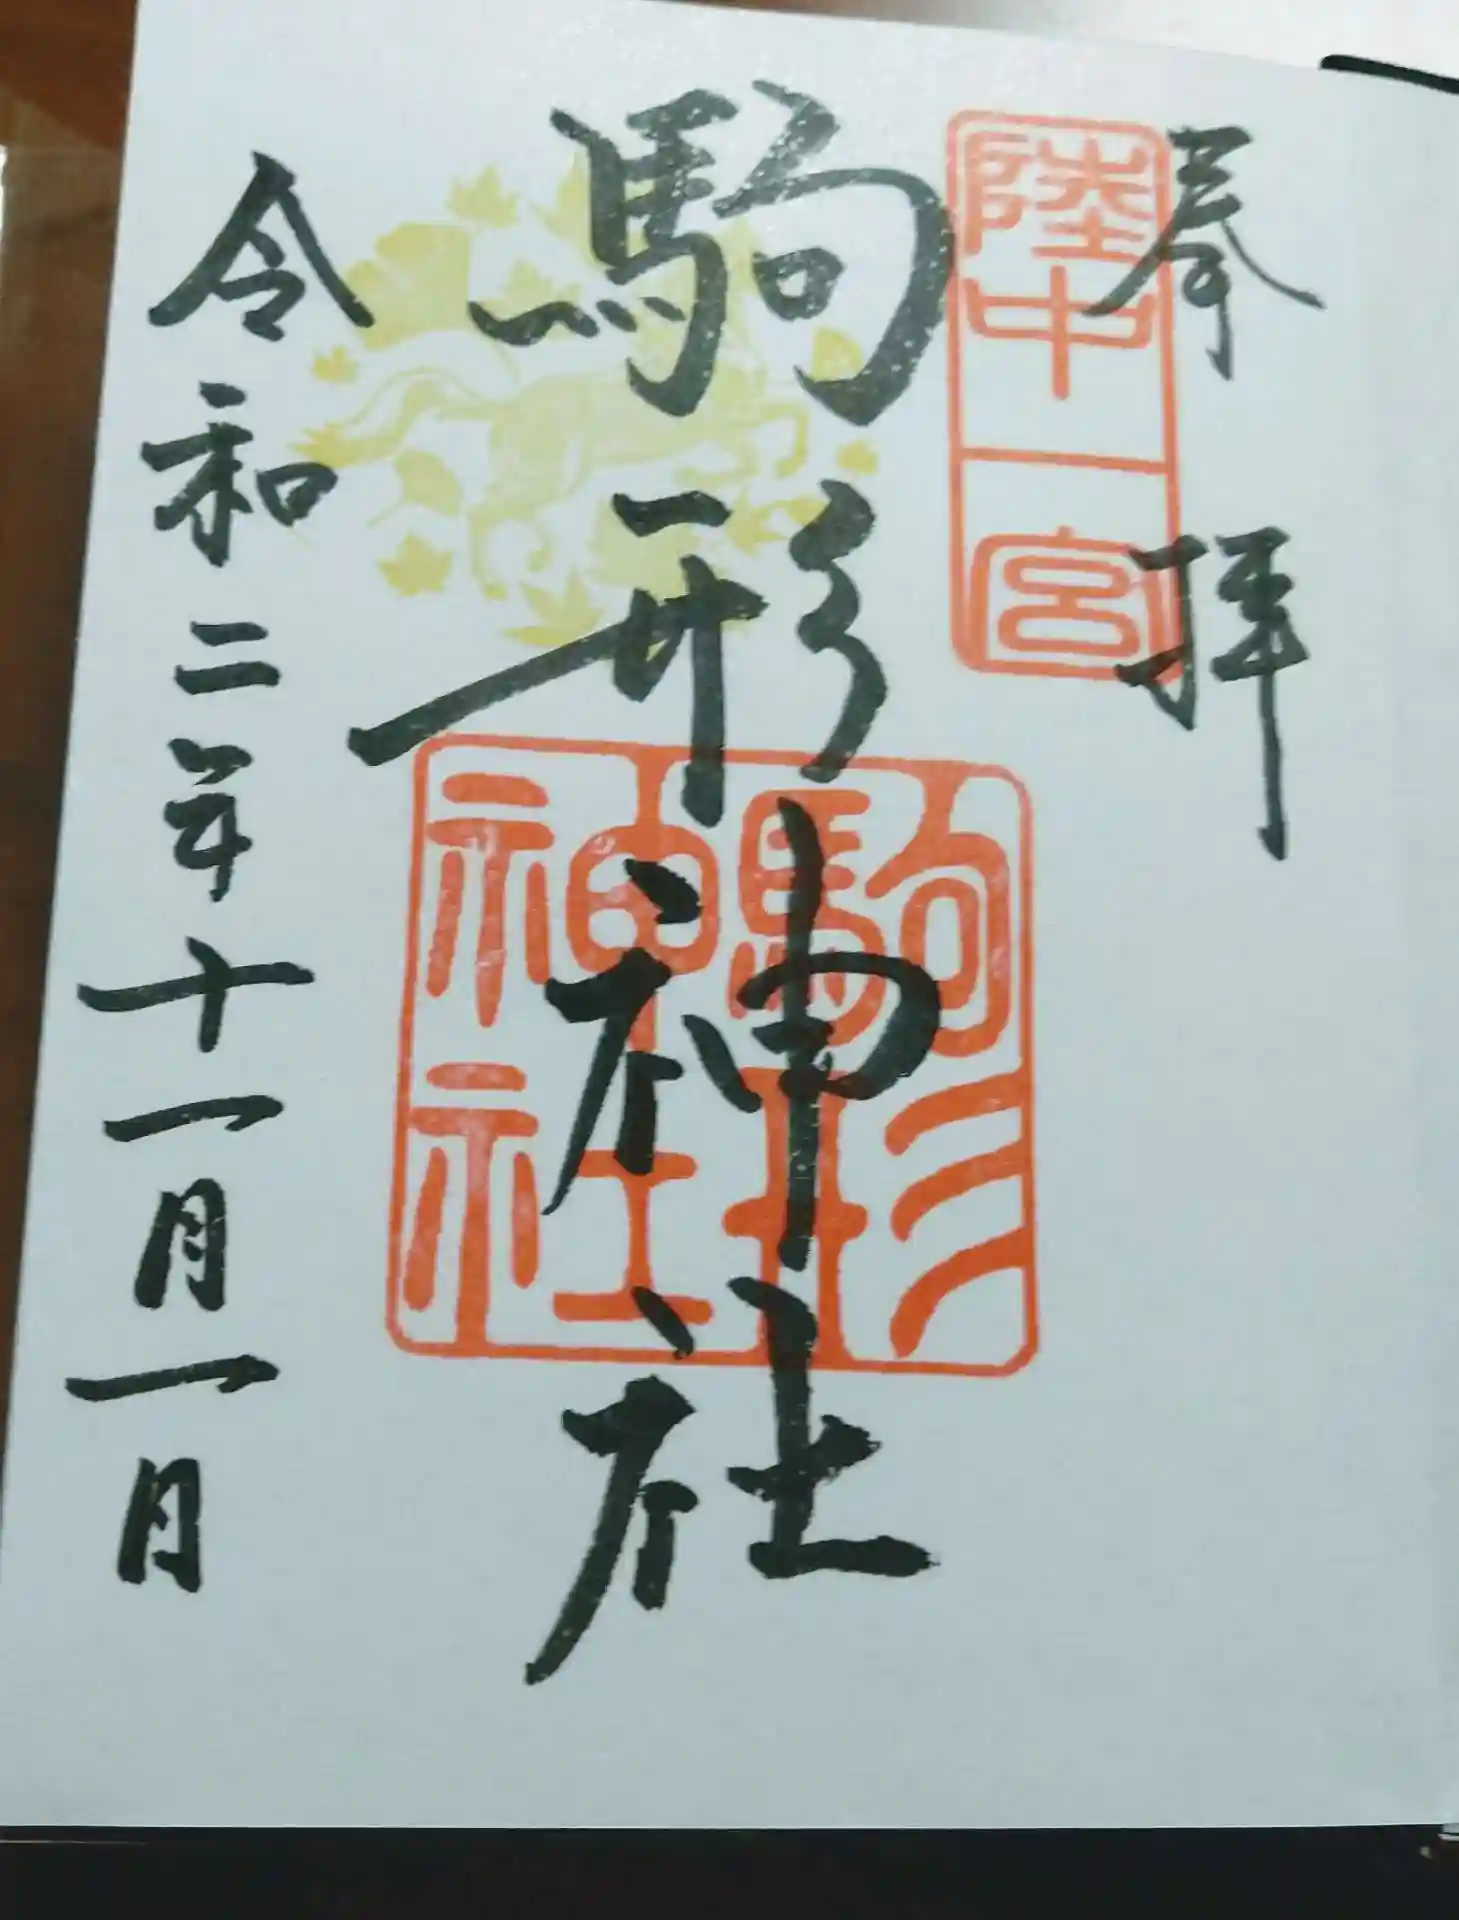 奉拝
陸中一宮
駒形神社
駒形
神社
令和二年十一月一日